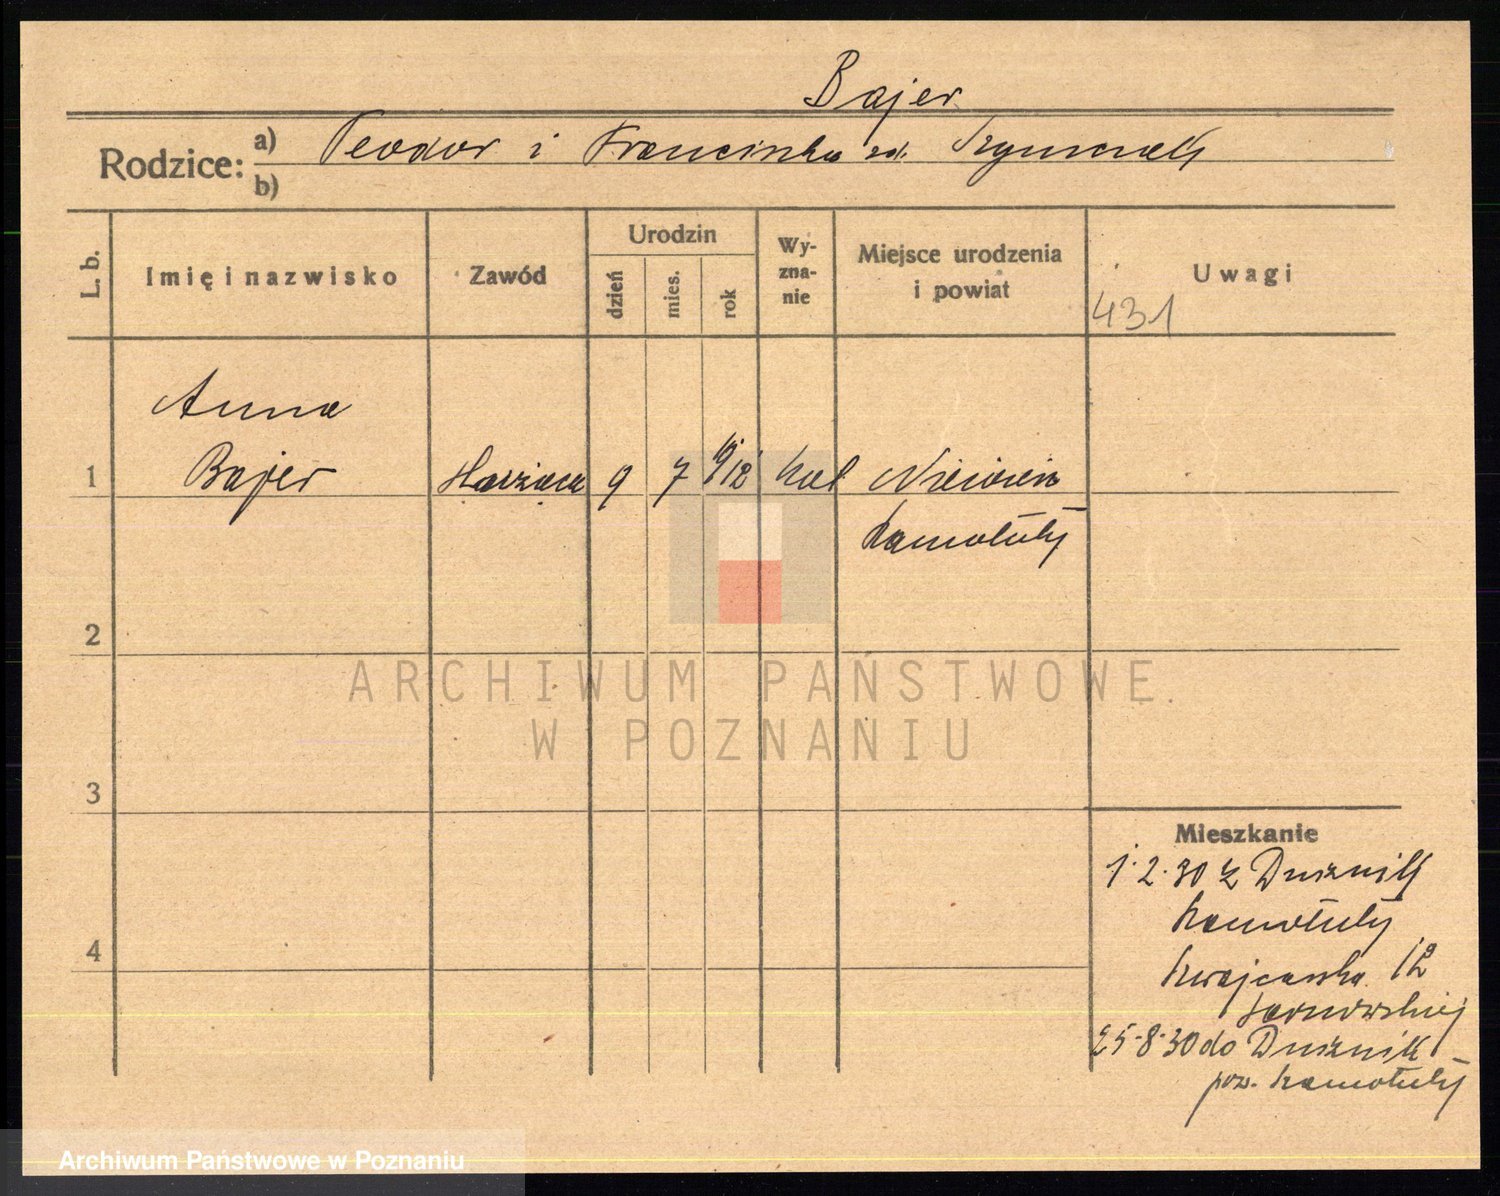 Bajer
Rodzice: a) Teodor i Franciszka zd. Szymczak
b)
L. b.
Imię i nazwisko
Zawód
Urodzin
dzień
mies.
rok
Wy-
zna-
nie
Miejsce urodzenia
i powiat
Uwagi
431
Anna
1 Bajer służąca 9 7 1912 kat Niewierz
Szamotuły
2
ARCHIWUM PAŃSTWOWE
W POZNANIU
3
Mieszkanie
1.2.30 z Dusznik
Szamotuły
4
Szwajcarska 12
25.8.30 do Dusznik
pow. Szamotuły
Archiwum Państwowe w Poznaniu